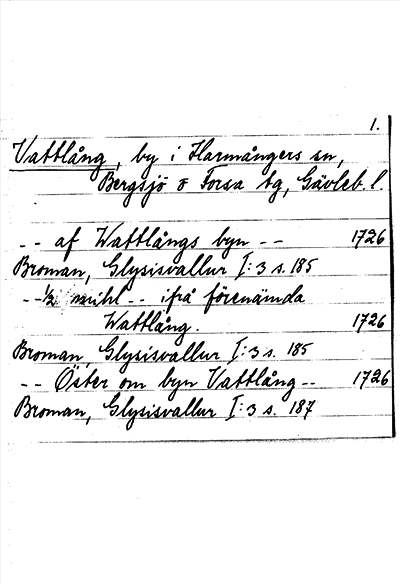 1.
Vattlång, by i Harmångers sn,
Bergsjö o Forsa tg, Gävleb. l.
-- af Wattlångs byn -- 1726
Broman, Glysisvallur I:3 s. 185
-- ½ -- ifrå förenämda
Wattlång. 1726
Broman, Glysisvallur I:3 s. 185
-- Öster om byn Vattlång -- 1726
Broman, Glysisvallur I:3 s. 187